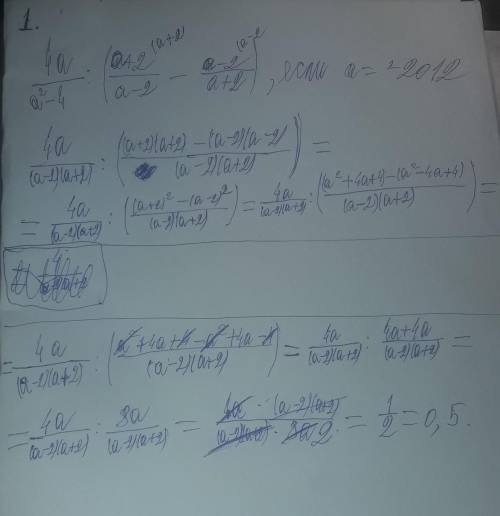 1.
4a/(a²-4) : ((a+2)/(a-2) ^(a+2) - (a-2)/(a+2) ^(a-2)), если a = -2012
4a/((a-2)(a+2)) : (((a+2)(a+2) - (a-2)(a-2))/((a-2)(a+2))) =
= 4a/((a-2)(a+2)) : (((a+2)² - (a-2)²)/((a-2)(a+2))) = 4a/((a-2)(a+2)) : ((a²+4a+4) - (a²-4a+4))/((a-2)(a+2)) =
= 4a/((a-2)(a+2)) : ((a²+4a+4-a²+4a-4)/((a-2)(a+2))) = 4a/((a-2)(a+2)) : (4a+4a)/((a-2)(a+2)) =
= 4a/((a-2)(a+2)) : 8a/((a-2)(a+2)) = (4a · (a-2)(a+2))/((a-2)(a+2) · 8a 2) = 1/2 = 0,5.